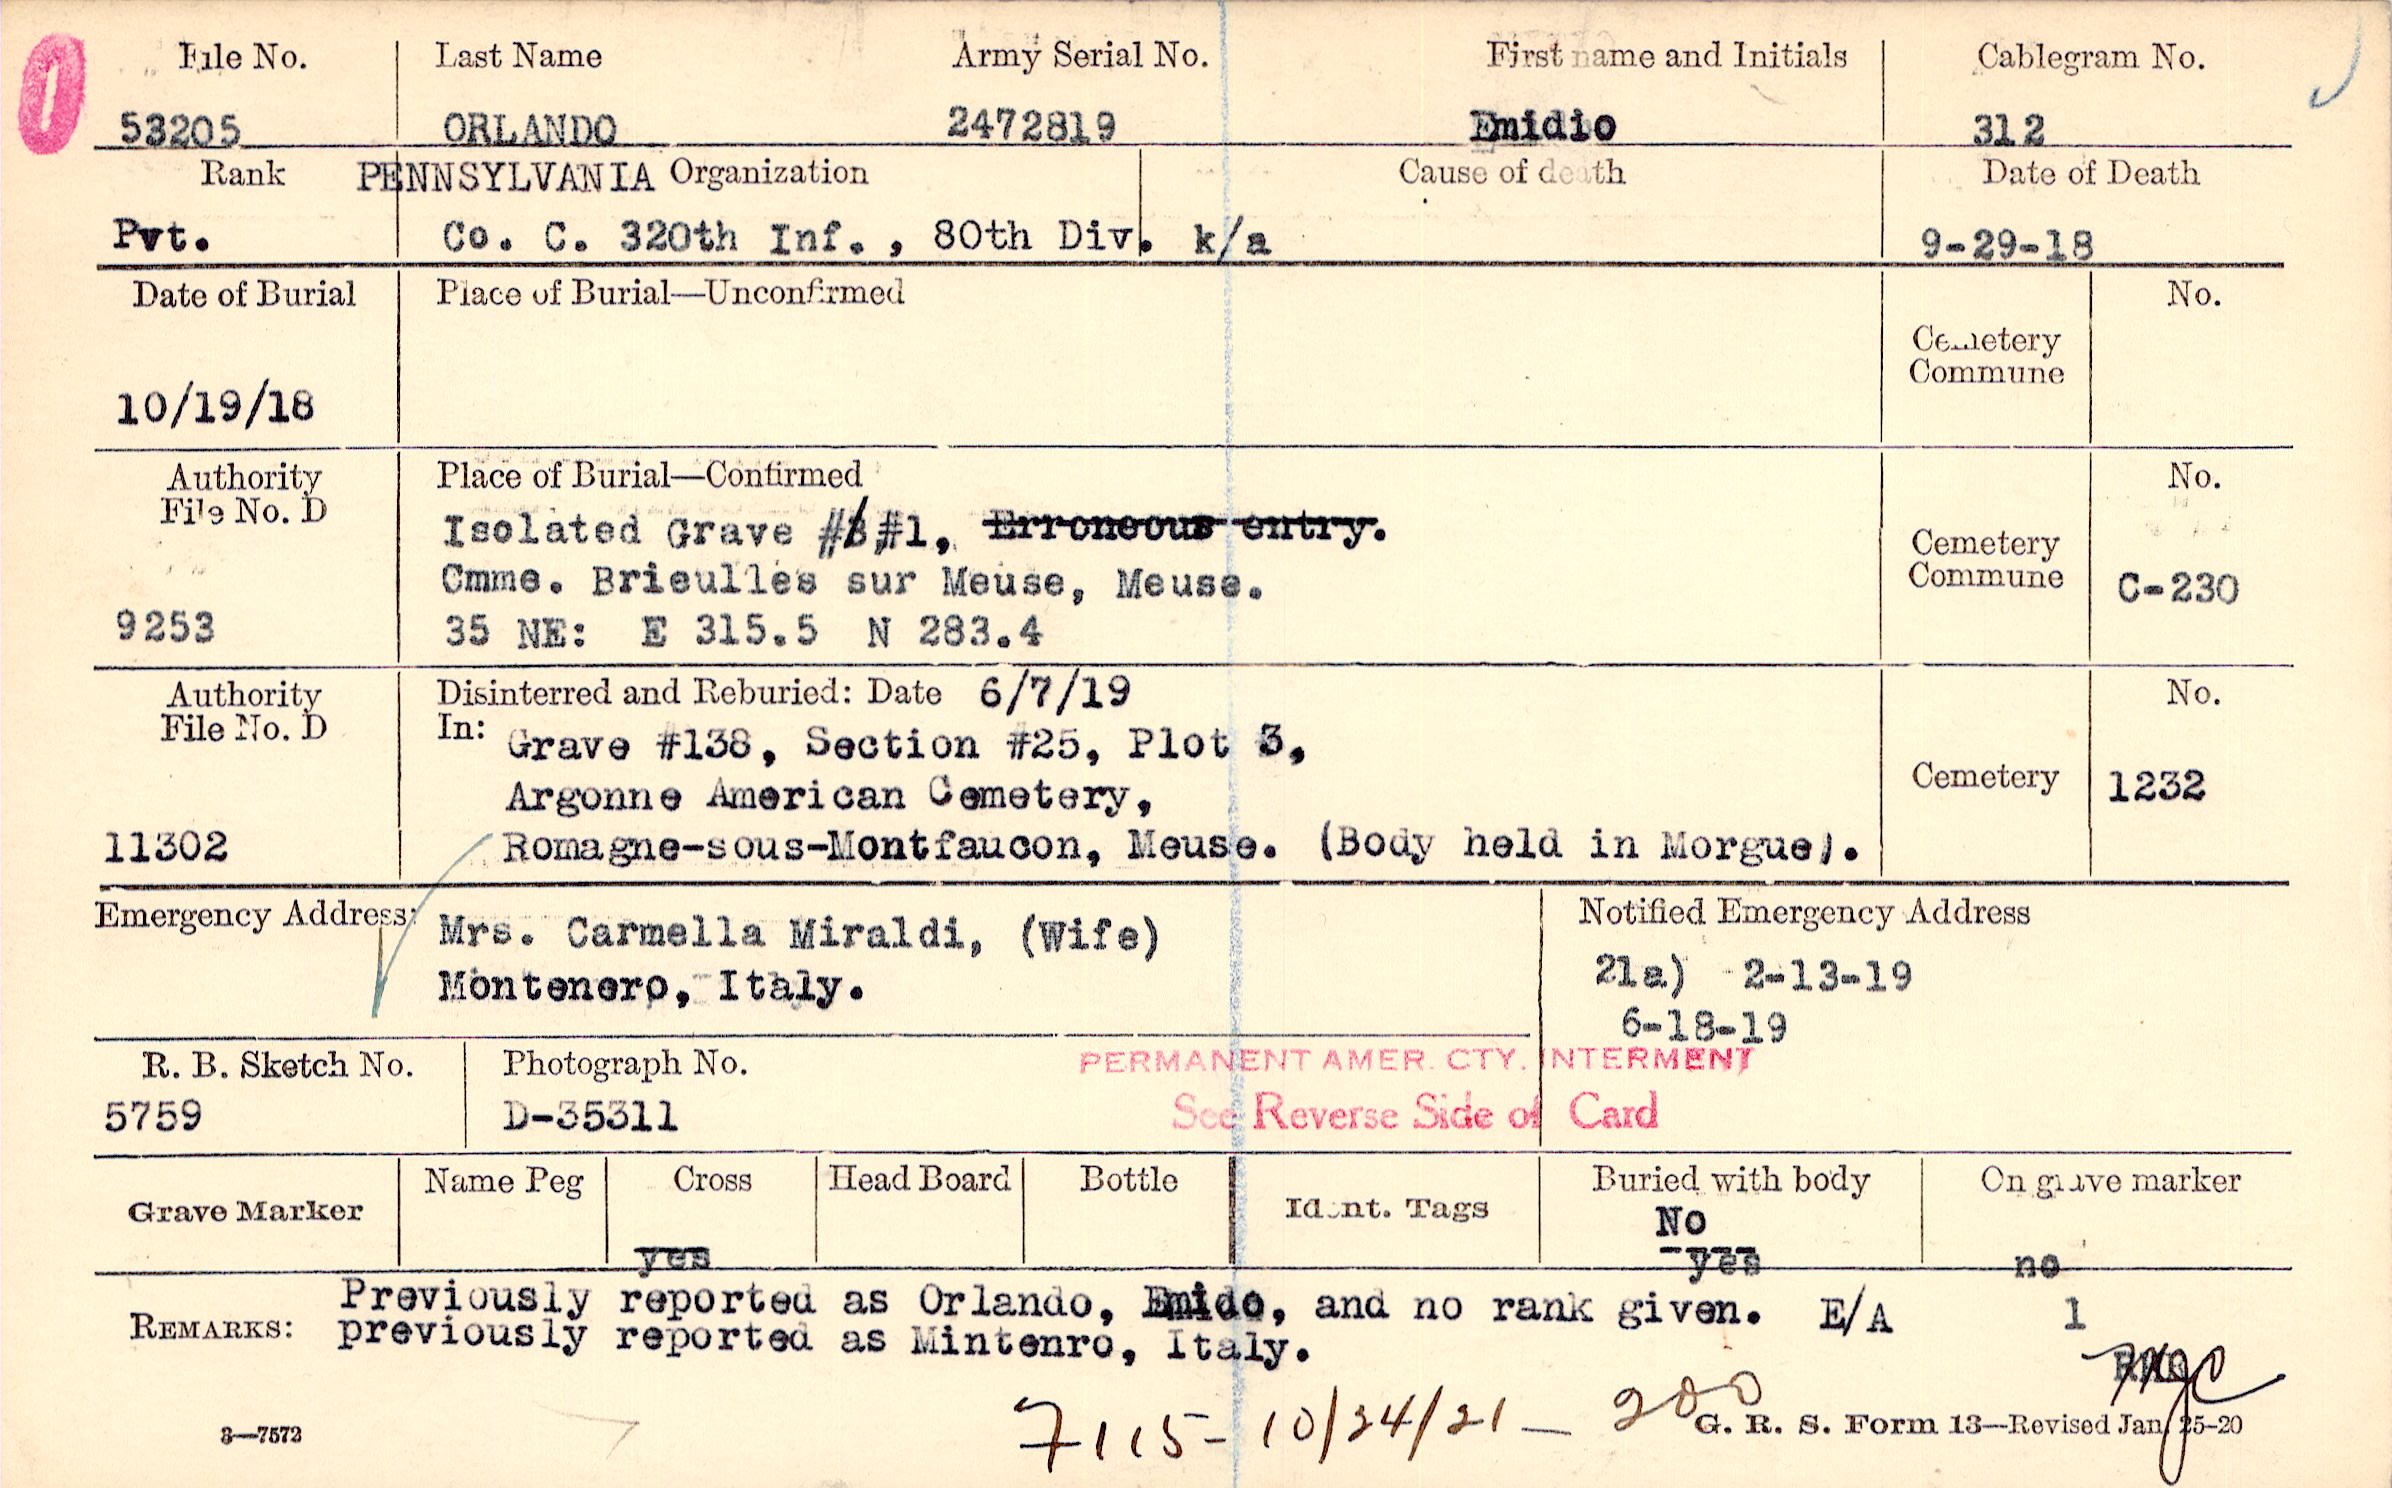 File No. Last Name Army Serial No. First name and Initials Cablegram No.
53205 ORLANDO 2472819 Emidio 312
Rank PENNSYLVANIA Organization Cause of death Date of Death
Pvt. Co. C. 320th Inf., 80th Div. k/a 9-29-18
Date of Burial Place of Burial—Unconfirmed No.
Cemetery
Commune
10/19/18
Authority Place of Burial—Confirmed No.
File No. D
Isolated Grave #1, Erroneous entry.
Cemetery
Cmme. Brieulles sur Meuse, Meuse. Commune C-230
9253 35 NE: E 315.5 N 283.4
Authority Disinterred and Reburied: Date 6/7/19 No.
File No. D In: Grave #138, Section #25, Plot 3,
Argonne American Cemetery, Cemetery 1232
11302 Romagne-sous-Montfaucon, Meuse. (Body held in Morgue).
Emergency Address: Mrs. Carmella Miraldi, (Wife) Notified Emergency Address
Montenero, Italy. 21a) 2-13-19
6-18-19
R. B. Sketch No. Photograph No. PERMANENT AMER. CTY. INTERMENT
5759 D-35311 See Reverse Side of Card
Grave Marker Name Peg Cross Head Board Bottle Ident. Tags Buried with body On grave marker
No
yes yes no
REMARKS: Previously reported as Orlando, Emido, and no rank given. E/A 1
previously reported as Mintenro, Italy.
7115- 10/24/21 — 200
3—7572 G. R. S. Form 13—Revised Jan. 25-20